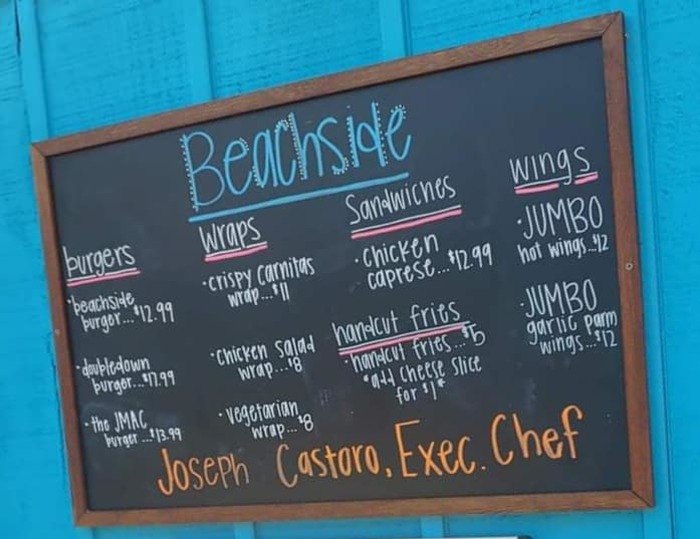 Beachside
burgers
·beachside
burger...$12.99
·doubledown
burger...$17.99
·the JMAC
burger...$13.99
Wraps
·crispy carnitas
wrap...$11
·Chicken Salad
wrap...$8
·vegetarian
wrap...$8
Sandwiches
·Chicken
caprese...$12.99
handcut fries
·handcut fries...$5
*add cheese slice
for $1*
wings
·JUMBO
hot wings...$12
·JUMBO
garlic parm
wings...$12
Joseph Castoro, Exec. Chef